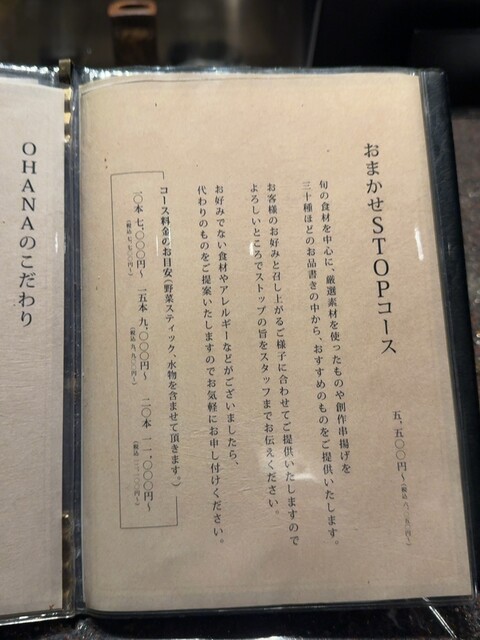 おまかせSTOPコース
五、五〇〇円〜(税込 六、〇五〇円〜)
旬の食材を中心に、厳選素材を使ったものや創作串揚げを
三十種ほどのお品書きの中から、おすすめのものをご提供いたします。
お客様のお好みと召し上がるご様子に合わせてご提供いたしますので
よろしいところでストップの旨をスタッフまでお伝えください。
お好みでない食材やアレルギーなどがございましたら、
代わりのものをご提案いたしますのでお気軽にお申し付けください。
コース料金のお目安(野菜スティック、水物を含ませて頂きます。)
一〇本 七、〇〇〇円〜 一五本 九、〇〇〇円〜 二〇本 一一、〇〇〇円〜
(税込 七、七〇〇円〜) (税込 九、九〇〇円〜) (税込 一二、一〇〇円〜)
OHANAのこだわり